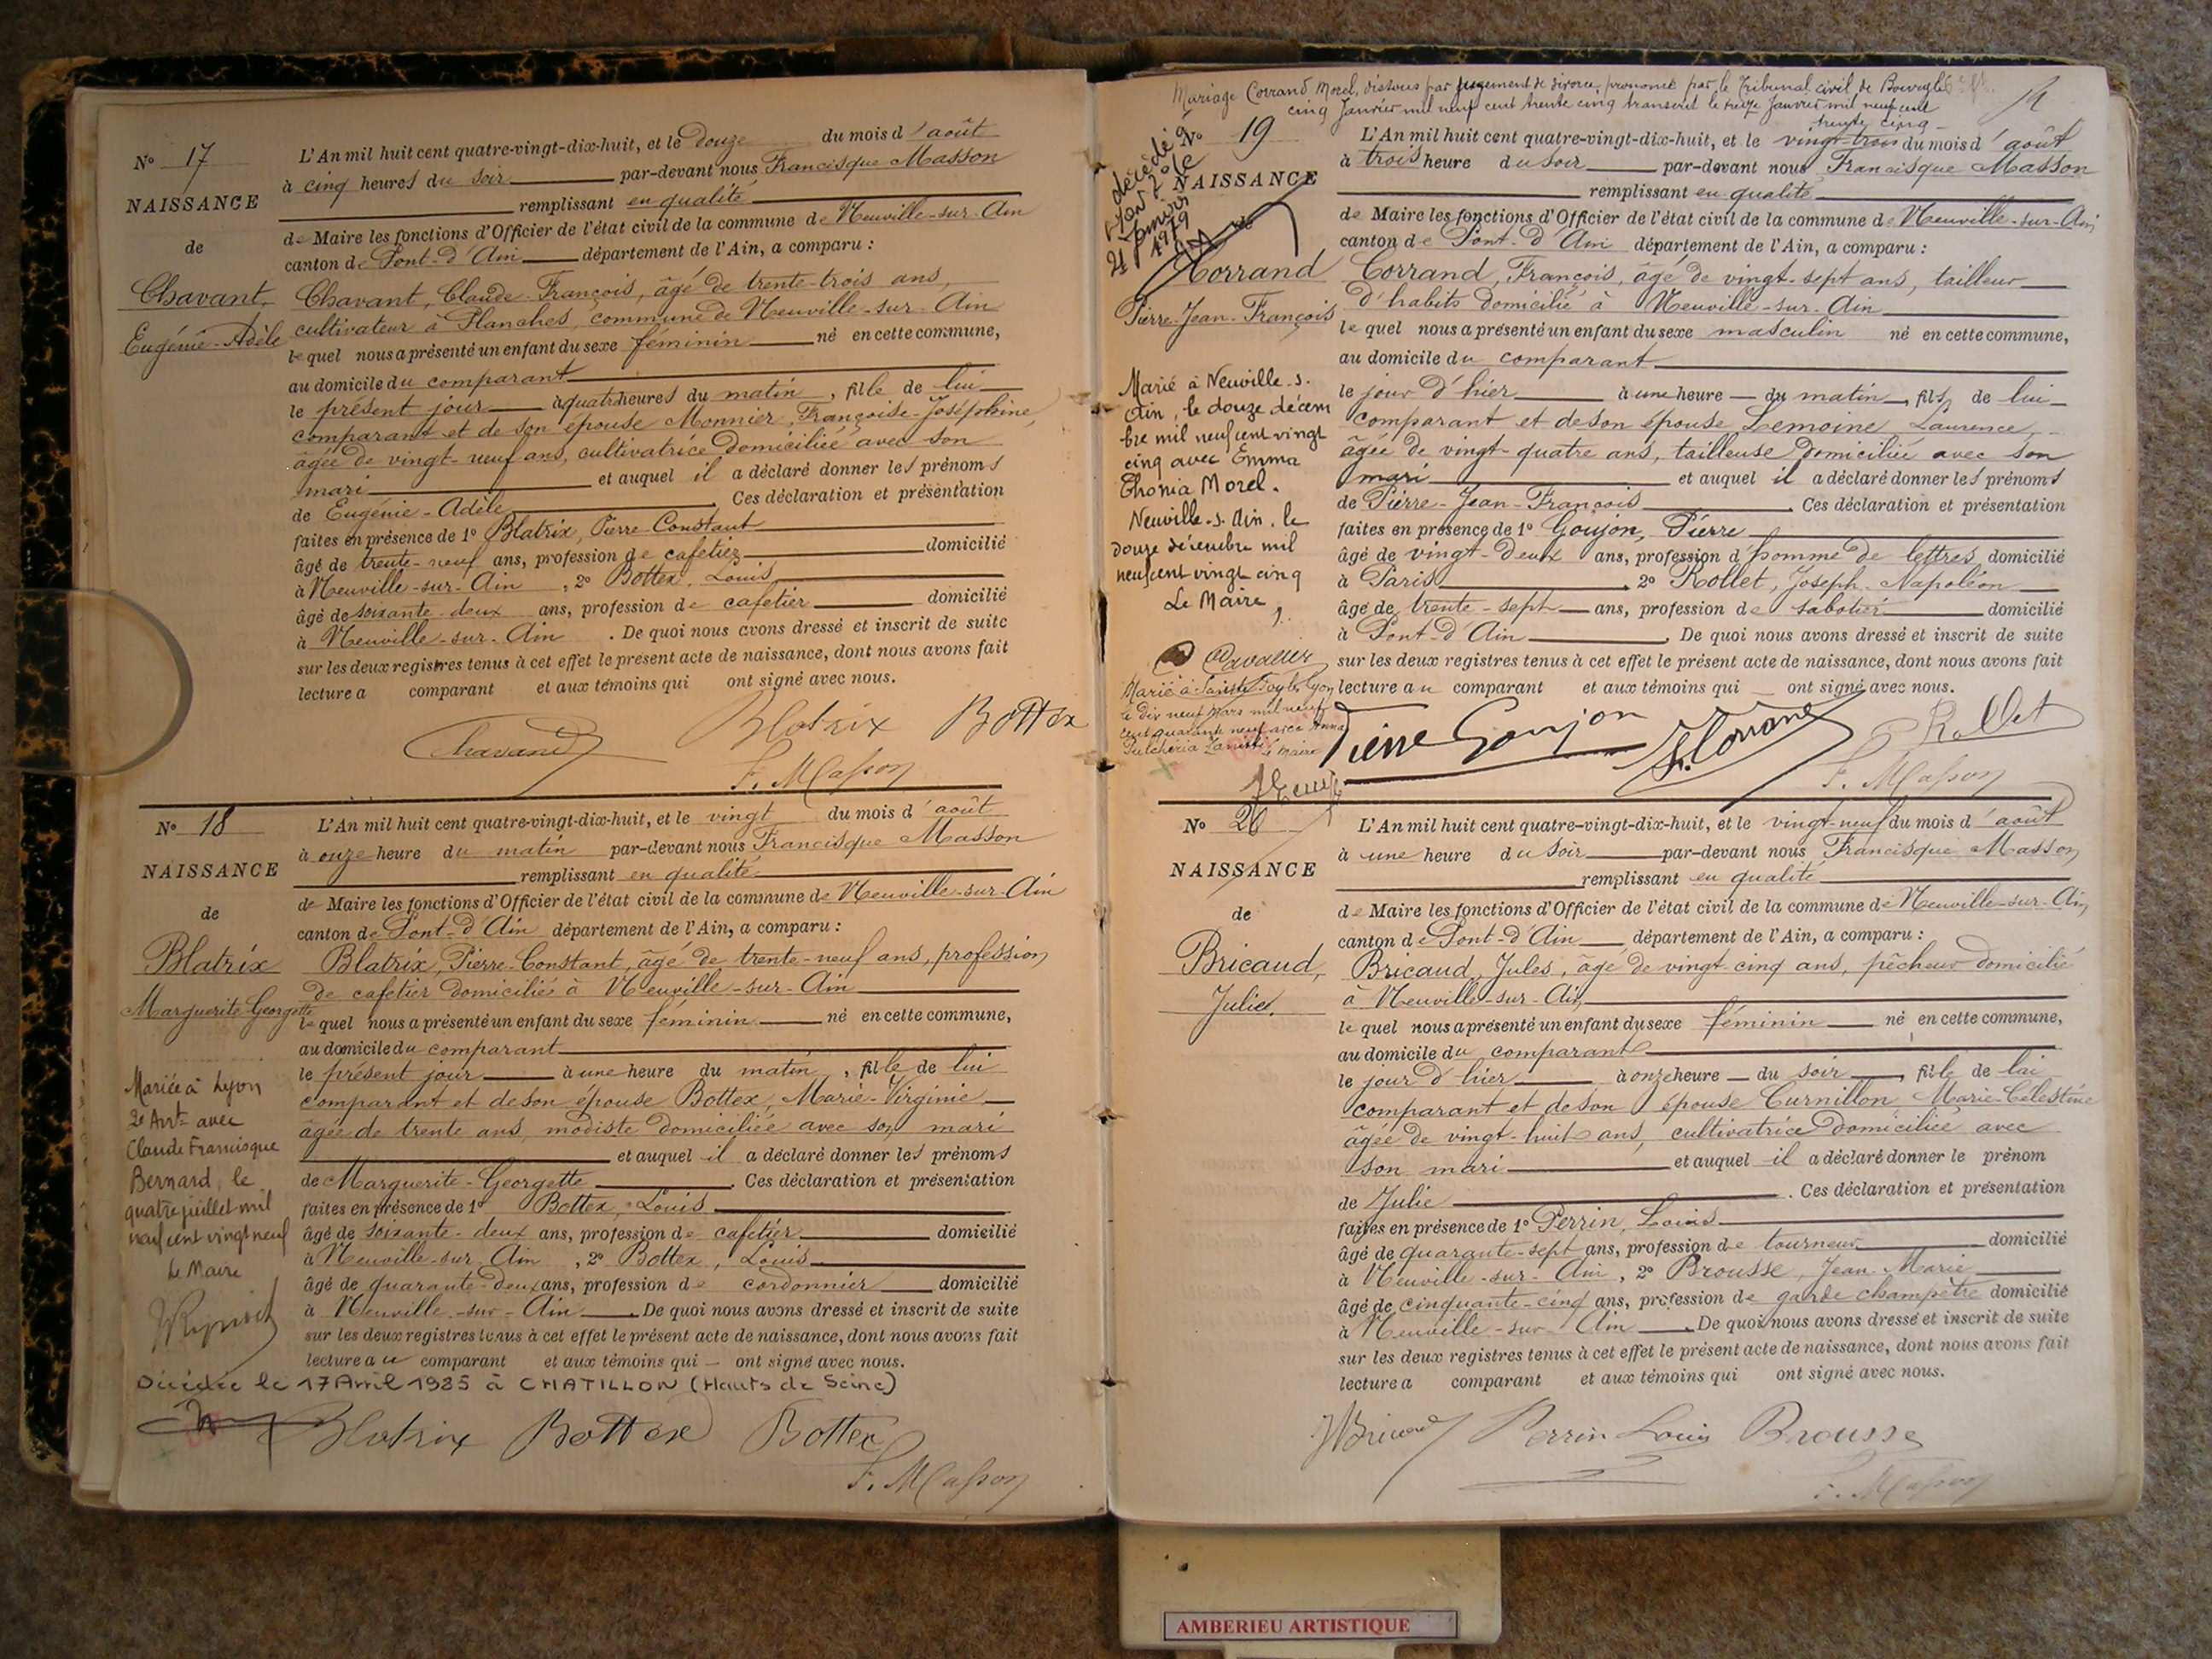 N° 17
NAISSANCE
de
Chavant,
Eugénie-Adèle
L'An mil huit cent quatre-vingt-dix-huit, et le douze du mois d'août
à cinq heures du soir par-devant nous Francisque Masson
remplissant en qualité
de Maire les fonctions d'Officier de l'état civil de la commune de Neuville-sur-Ain
canton de Pont-d'Ain département de l'Ain, a comparu :
Chavant, Claude-François, âgé de trente-trois ans,
cultivateur à Planches, commune de Neuville-sur-Ain
lequel nous a présenté un enfant du sexe féminin né en cette commune,
au domicile du comparant
le présent jour à quatre heures du matin, fille de lui
comparant et de son épouse Monnier, Françoise-Joséphine,
âgée de vingt-neuf ans, cultivatrice domiciliée avec son
mari et auquel il a déclaré donner les prénoms
de Eugénie-Adèle. Ces déclaration et présentation
faites en présence de 1° Blatrix, Pierre-Constant
âgé de trente-neuf ans, profession de cafetier domicilié
à Neuville-sur-Ain, 2° Bottex, Louis
âgé de soixante-deux ans, profession de cafetier domicilié
à Neuville-sur-Ain. De quoi nous avons dressé et inscrit de suite
sur les deux registres tenus à cet effet le présent acte de naissance, dont nous avons fait
lecture a comparant et aux témoins qui ont signé avec nous.
Chavand Blatrix Bottex
F. Masson
N° 18
NAISSANCE
de
Blatrix
Marguerite Georgette
Mariée à Lyon
2e Arrt avec
Claude Francisque
Bernard, le
quatre juillet mil
neuf cent vingt neuf
Le Maire
L'An mil huit cent quatre-vingt-dix-huit, et le vingt du mois d'août
à onze heure du matin par-devant nous Francisque Masson
remplissant en qualité
de Maire les fonctions d'Officier de l'état civil de la commune de Neuville-sur-Ain
canton de Pont-d'Ain département de l'Ain, a comparu :
Blatrix, Pierre-Constant, âgé de trente-neuf ans, profession
de cafetier domiciliés à Neuville-sur-Ain
lequel nous a présenté un enfant du sexe féminin né en cette commune,
au domicile du comparant
le présent jour à une heure du matin, fille de lui
comparant et de son épouse Bottex, Marie-Virginie
âgée de trente ans, modiste domiciliée avec son mari
et auquel il a déclaré donner les prénoms
de Marguerite-Georgette. Ces déclaration et présentation
faites en présence de 1° Bottex, Louis
âgé de soixante-deux ans, profession de cafetier domicilié
à Neuville-sur-Ain, 2° Bottex, Louis
âgé de quarante-deux ans, profession de cordonnier domicilié
à Neuville-sur-Ain. De quoi nous avons dressé et inscrit de suite
sur les deux registres tenus à cet effet le présent acte de naissance, dont nous avons fait
lecture au comparant et aux témoins qui — ont signé avec nous.
Décédée le 17 Avril 1985 à CHATILLON (Hauts de Seine)
Blatrix Bottex Bottex
F. Masson
Mariage Corrand Morel, dissous par jugement de divorce, prononcé par le Tribunal civil de Bourg le
cinq Janvier mil neuf cent trente cinq transcrit le treize Janvier mil neuf cent
trente cinq
N° 19
NAISSANCE
décédé à
Lyon 2e le
21 janvier
1979
Corrand
Pierre-Jean-François
Marié à Neuville-s.
Ain, le douze décem
bre mil neuf cent vingt
cinq avec Emma
Thonia Morel.
Neuville-s.-Ain, le
douze décembre mil
neuf cent vingt cinq
Le Maire,
Marié à Lyon
le dix neuf Mars mil neuf
cent quarante neuf avec Anna
le Maire
L'An mil huit cent quatre-vingt-dix-huit, et le vingt-trois du mois d'août
à trois heure du soir par-devant nous Francisque Masson
remplissant en qualité
de Maire les fonctions d'Officier de l'état civil de la commune de Neuville-sur-Ain
canton de Pont-d'Ain département de l'Ain, a comparu :
Corrand, François, âgé de vingt-sept ans, tailleur
d'habits domicilié à Neuville-sur-Ain
lequel nous a présenté un enfant du sexe masculin né en cette commune,
au domicile du comparant
le jour d'hier à une heure — du matin, fils de lui
comparant et de son épouse Lemoine Laurence,
âgée de vingt-quatre ans, tailleuse domiciliée avec son
mari et auquel il a déclaré donner les prénoms
de Pierre-Jean-François. Ces déclaration et présentation
faites en présence de 1° Goujon, Pierre
âgé de vingt-deux ans, profession d'homme de lettres domicilié
à Paris, 2° Rollet, Joseph-Napoléon
âgé de trente-sept ans, profession de sabotier domicilié
à Pont-d'Ain. De quoi nous avons dressé et inscrit de suite
sur les deux registres tenus à cet effet le présent acte de naissance, dont nous avons fait
lecture au comparant et aux témoins qui — ont signé avec nous.
Pierre Goujon F. Corrand Rollet
F. Masson
N° 20
NAISSANCE
de
Bricaud,
Julie.
L'An mil huit cent quatre-vingt-dix-huit, et le vingt-neuf du mois d'août
à une heure du soir par-devant nous Francisque Masson
remplissant en qualité
de Maire les fonctions d'Officier de l'état civil de la commune de Neuville-sur-Ain
canton de Pont-d'Ain département de l'Ain, a comparu :
Bricaud, Jules, âgé de vingt-cinq ans, pêcheur domicilié
à Neuville-sur-Ain,
lequel nous a présenté un enfant du sexe féminin né en cette commune,
au domicile du comparant
le jour d'hier à onze heure — du soir, fille de lui
comparant et de son épouse Curnillon Marie-Célestine
âgée de vingt-huit ans, cultivatrice domiciliée avec
son mari et auquel il a déclaré donner le prénom
de Julie. Ces déclaration et présentation
faites en présence de 1° Perrin, Louis
âgé de quarante-sept ans, profession de tourneur domicilié
à Neuville-sur-Ain, 2° Brousse, Jean-Marie
âgé de cinquante-cinq ans, profession de garde champêtre domicilié
à Neuville-sur-Ain. De quoi nous avons dressé et inscrit de suite
sur les deux registres tenus à cet effet le présent acte de naissance, dont nous avons fait
lecture a comparant et aux témoins qui ont signé avec nous.
JBricaud Perrin Louis Brousse
F. Masson
AMBERIEU ARTISTIQUE